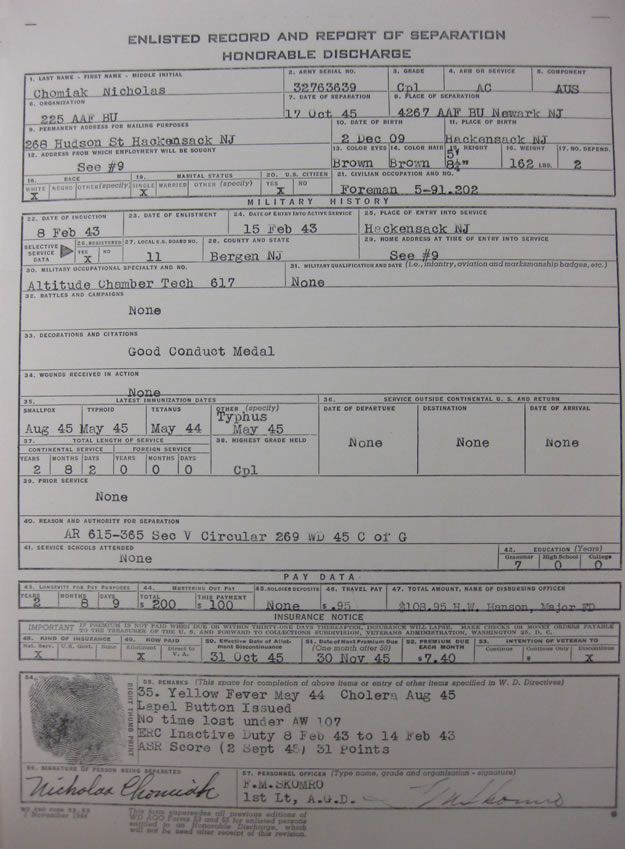 ENLISTED RECORD AND REPORT OF SEPARATION
HONORABLE DISCHARGE
1. LAST NAME - FIRST NAME - MIDDLE INITIAL 2. ARMY SERIAL NO. 3. GRADE 4. ARM OR SERVICE 5. COMPONENT
Chomiak Nicholas 32763639 Cpl AC AUS
6. ORGANIZATION 7. DATE OF SEPARATION 8. PLACE OF SEPARATION
225 AAF BU 17 Oct 45 4267 AAF BU Newark NJ
9. PERMANENT ADDRESS FOR MAILING PURPOSES 10. DATE OF BIRTH 11. PLACE OF BIRTH
268 Hudson St Hackensack NJ 2 Dec 09 Hackensack NJ
12. ADDRESS FROM WHICH EMPLOYMENT WILL BE SOUGHT 13. COLOR EYES 14. COLOR HAIR 15. HEIGHT 16. WEIGHT 17. NO. DEPEND.
See #9 Brown Brown 5' 8¼" 162 LBS. 2
18. RACE 19. MARITAL STATUS 20. U.S. CITIZEN 21. CIVILIAN OCCUPATION AND NO.
WHITE NEGRO OTHER (specify) SINGLE MARRIED OTHER (specify) YES NO
X X X Foreman 5-91.202
MILITARY HISTORY
22. DATE OF INDUCTION 23. DATE OF ENLISTMENT 24. DATE OF ENTRY INTO ACTIVE SERVICE 25. PLACE OF ENTRY INTO SERVICE
8 Feb 43 15 Feb 43 Hackensack NJ
SELECTIVE SERVICE DATA 26. REGISTERED 27. LOCAL S.S. BOARD NO. 28. COUNTY AND STATE 29. HOME ADDRESS AT TIME OF ENTRY INTO SERVICE
YES NO
X 11 Bergen NJ See #9
30. MILITARY OCCUPATIONAL SPECIALTY AND NO. 31. MILITARY QUALIFICATION AND DATE (i.e., infantry, aviation and marksmanship badges, etc.)
Altitude Chamber Tech 617 None
32. BATTLES AND CAMPAIGNS
None
33. DECORATIONS AND CITATIONS
Good Conduct Medal
34. WOUNDS RECEIVED IN ACTION
None
35. LATEST IMMUNIZATION DATES 36. SERVICE OUTSIDE CONTINENTAL U. S. AND RETURN
SMALLPOX TYPHOID TETANUS OTHER (specify) DATE OF DEPARTURE DESTINATION DATE OF ARRIVAL
Typhus
Aug 45 May 45 May 44 May 45
37. TOTAL LENGTH OF SERVICE 38. HIGHEST GRADE HELD
CONTINENTAL SERVICE FOREIGN SERVICE None None None
YEARS MONTHS DAYS YEARS MONTHS DAYS
2 8 2 0 0 0 Cpl
39. PRIOR SERVICE
None
40. REASON AND AUTHORITY FOR SEPARATION
AR 615-365 Sec V Circular 269 WD 45 C of G
41. SERVICE SCHOOLS ATTENDED 42. EDUCATION (Years)
None Grammar High School College
7 0 0
PAY DATA
43. LONGEVITY FOR PAY PURPOSES 44. MUSTERING OUT PAY 45. SOLDIER DEPOSITS 46. TRAVEL PAY 47. TOTAL AMOUNT, NAME OF DISBURSING OFFICER
YEARS MONTHS DAYS TOTAL THIS PAYMENT
2 8 9 $ 200 $ 100 None $ .95 $108.95 H.W. Hanson, Major FD
INSURANCE NOTICE
IMPORTANT IF PREMIUM IS NOT PAID WHEN DUE OR WITHIN THIRTY-ONE DAYS THEREAFTER, INSURANCE WILL LAPSE. MAKE CHECKS OR MONEY ORDERS PAYABLE
TO THE TREASURER OF THE U. S. AND FORWARD TO COLLECTIONS SUBDIVISION, VETERANS ADMINISTRATION, WASHINGTON 25, D. C.
48. KIND OF INSURANCE 49. HOW PAID 50. Effective Date of Allotment Discontinuance 51. Date of Next Premium Due (One month after 50) 52. PREMIUM DUE EACH MONTH 53. INTENTION OF VETERAN TO
Nat. Serv. U.S. Govt. None Allotment Direct to V. A. Continue Continue Only Discontinue
X X 31 Oct 45 30 Nov 45 $ 7.40 X
54.
RIGHT THUMB PRINT
55. REMARKS (This space for completion of above items or entry of other items specified in W. D. Directives)
35. Yellow Fever May 44 Cholera Aug 45
Lapel Button Issued
No time lost under AW 107
ERC Inactive Duty 8 Feb 43 to 14 Feb 43
ASR Score (2 Sept 45) 31 Points
56. SIGNATURE OF PERSON BEING SEPARATED 57. PERSONNEL OFFICER (Type name, grade and organization - signature)
Nicholas Chomiak F.M. SKOMRO
1st Lt, A.G.D. F M Skomro
WD AGO FORM 53-55
1 November 1944
This form supersedes all previous editions of
WD AGO Forms 53 and 55 for enlisted persons
entitled to an Honorable Discharge, which
will not be used after receipt of this revision.